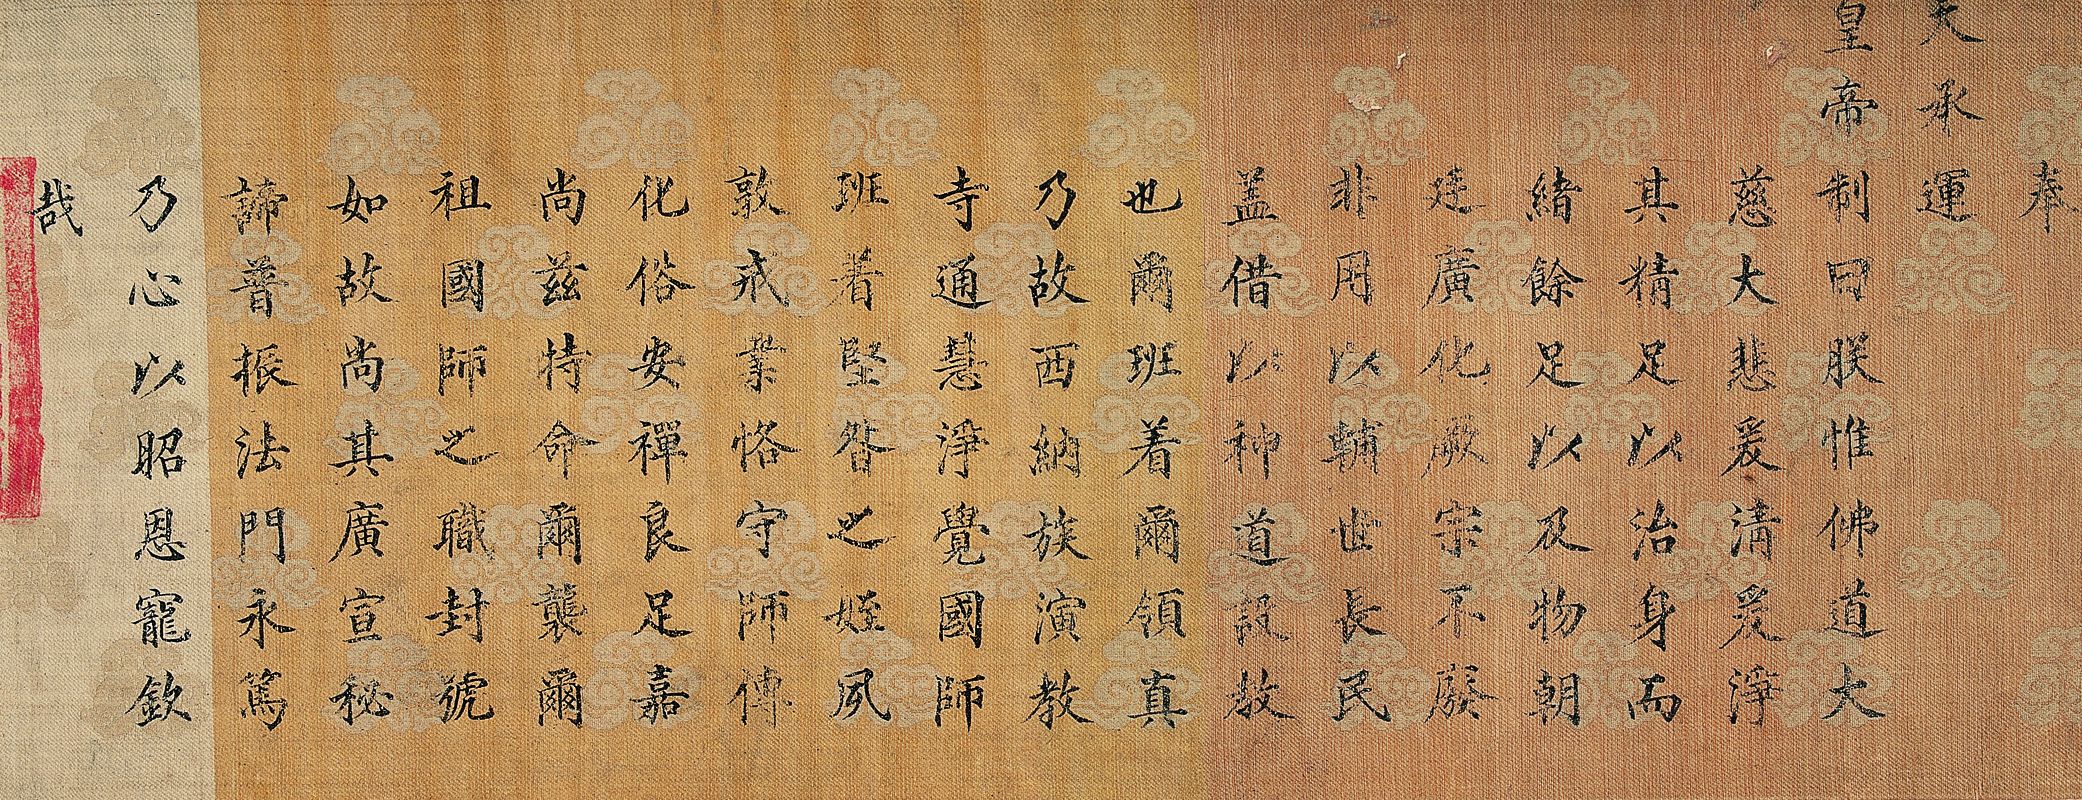 奉
天承運
皇帝制曰朕惟佛道大
慈大悲爰清爰淨
其精足以治身而
緒餘足以及物朝
廷廣化厥宗不廢
非用以輔世長民
盖借以神道設教
也爾班着爾領真
乃故西納族演教
寺通慧淨覺國師
班着堅昝之姪夙
敦戒業恪守師傳
化俗安禪良足嘉
尚兹特命爾襲爾
祖國師之職封號
如故尚其廣宣秘
諦普振法門永篤
乃心以昭恩寵欽
哉